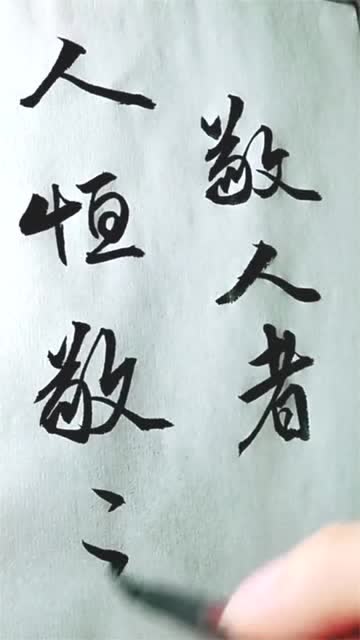 敬人者
人恒敬